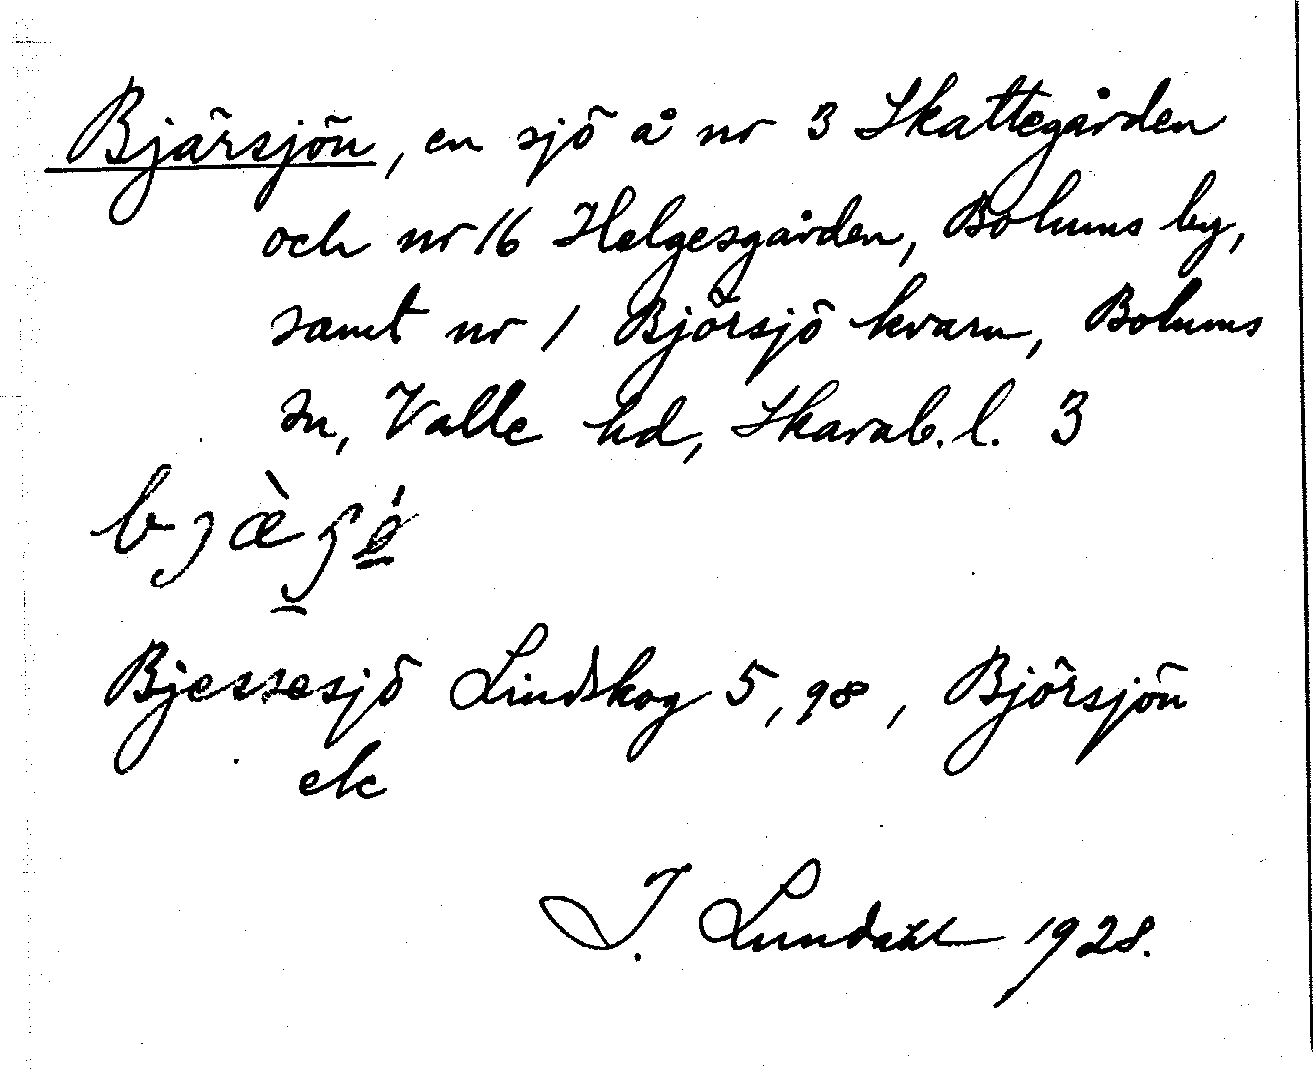 Bjärsjön, en sjö å nr 3 Skattegården
och nr 16 Helgesgården, Bolums by,
samt nr 1 Björsjö kvarn, Bolums
sn, Valle hd, Skarab. l. 3
Bjessesjö Lindskog 5,98, Björsjön
ek
I. Lundahl 1928.